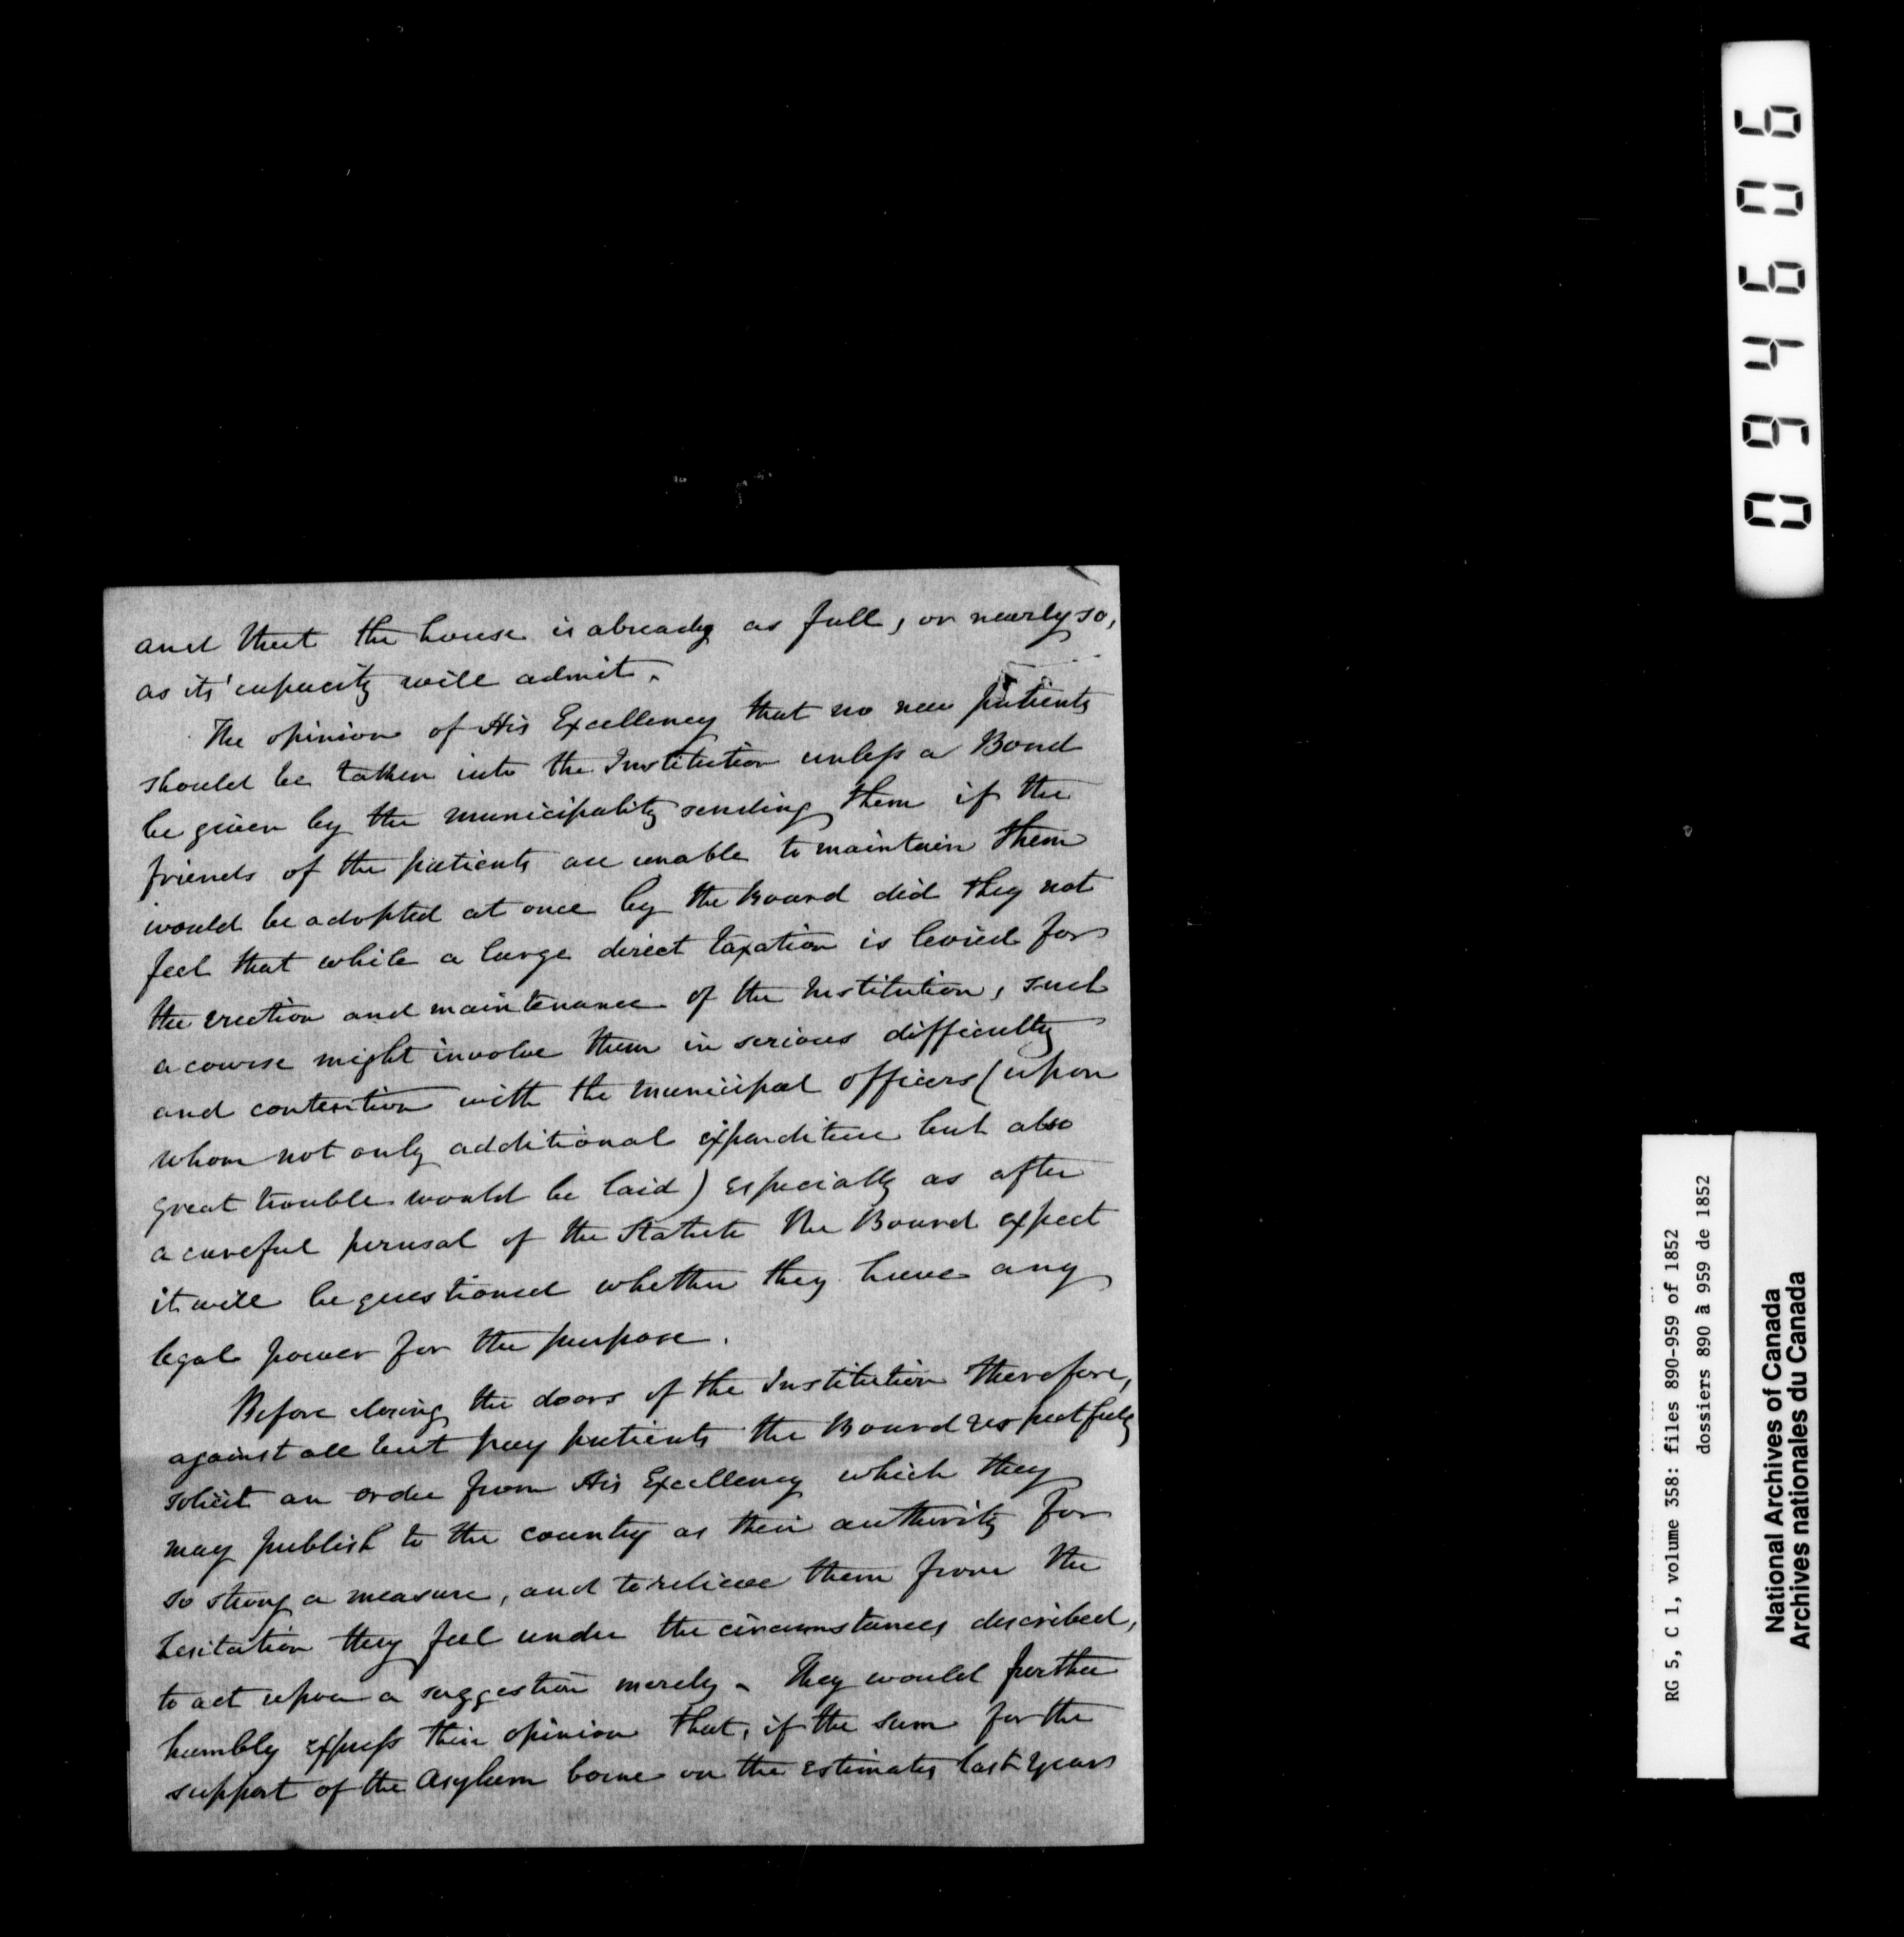 and that the house is already as full, or nearly so,
as its' capacity will admit.
The opinion of His Excellency that no new patients
should be taken into the Institution unless a Bond
be given by the municipality sending them if the
friends of the patients are unable to maintain them
would be adopted at once by the Board did they not
feel that while a large direct taxation is levied for
the erection and maintenance of the Institution, such
a course might involve them in serious difficulty
and contention with the municipal officers (upon
whom not only additional expenditure but also
great trouble would be laid) especially as after
a careful perusal of the Statute the Board expect
it will be questioned whether they have any
legal power for the purpose.
Before closing the doors of the Institution therefore,
against all but pay patients the Board respectfully
solicit an order from His Excellency which they
may publish to the country as their authority for
so strong a measure, and to relieve them from the
hesitation they feel under the circumstances described,
to act upon a suggestion merely - They would further
humbly express their opinion that, if the sum for the
support of the Asylum borne on the estimates last year
094606
RG 5, C 1, volume 358: files 890-959 of 1852
dossiers 890 à 959 de 1852
National Archives of Canada
Archives nationales du Canada